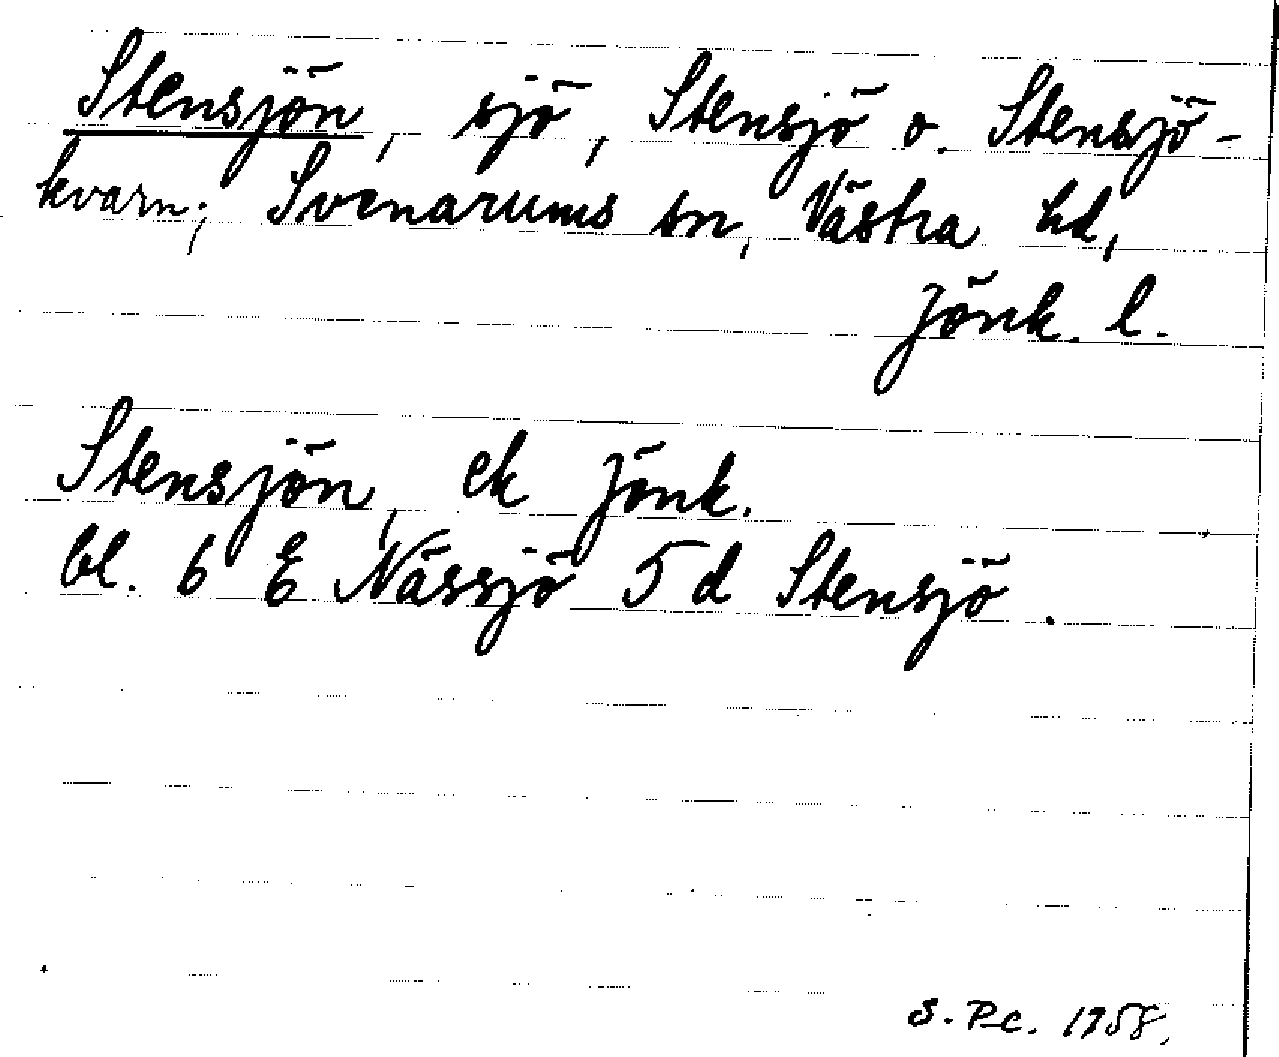 Stensjön, sjö, Stensjö o. Stensjö-
kvarn; Svenarums sn, Västra hd,
Jönk. l.
Stensjön, ek Jönk.
bl. 6 E Nässjö 5 d Stensjö.
S. P-c. 1958.